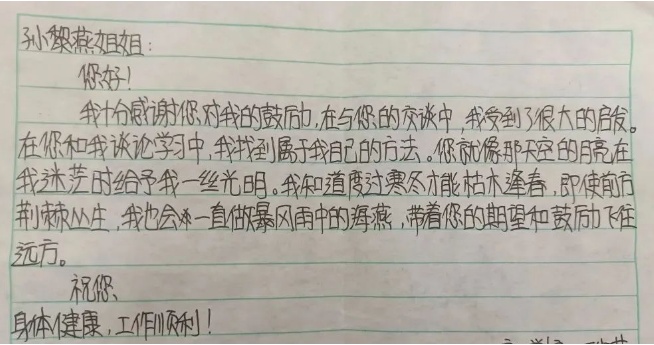 孙黎燕姐姐:
您好!
我十分感谢您对我的鼓励,在与您的交谈中,我受到了很大的启发。
在你和我谈论学习中,我找到属于我自己的方法。您就像那天空的月亮在
我迷茫时给予我一丝光明。我知道度过寒冬才能枯木逢春,即使前方
荆棘丛生,我也会一直做暴风雨中的海燕,带着您的期望和鼓励飞往
远方。
祝您、
身体健康,工作顺利!